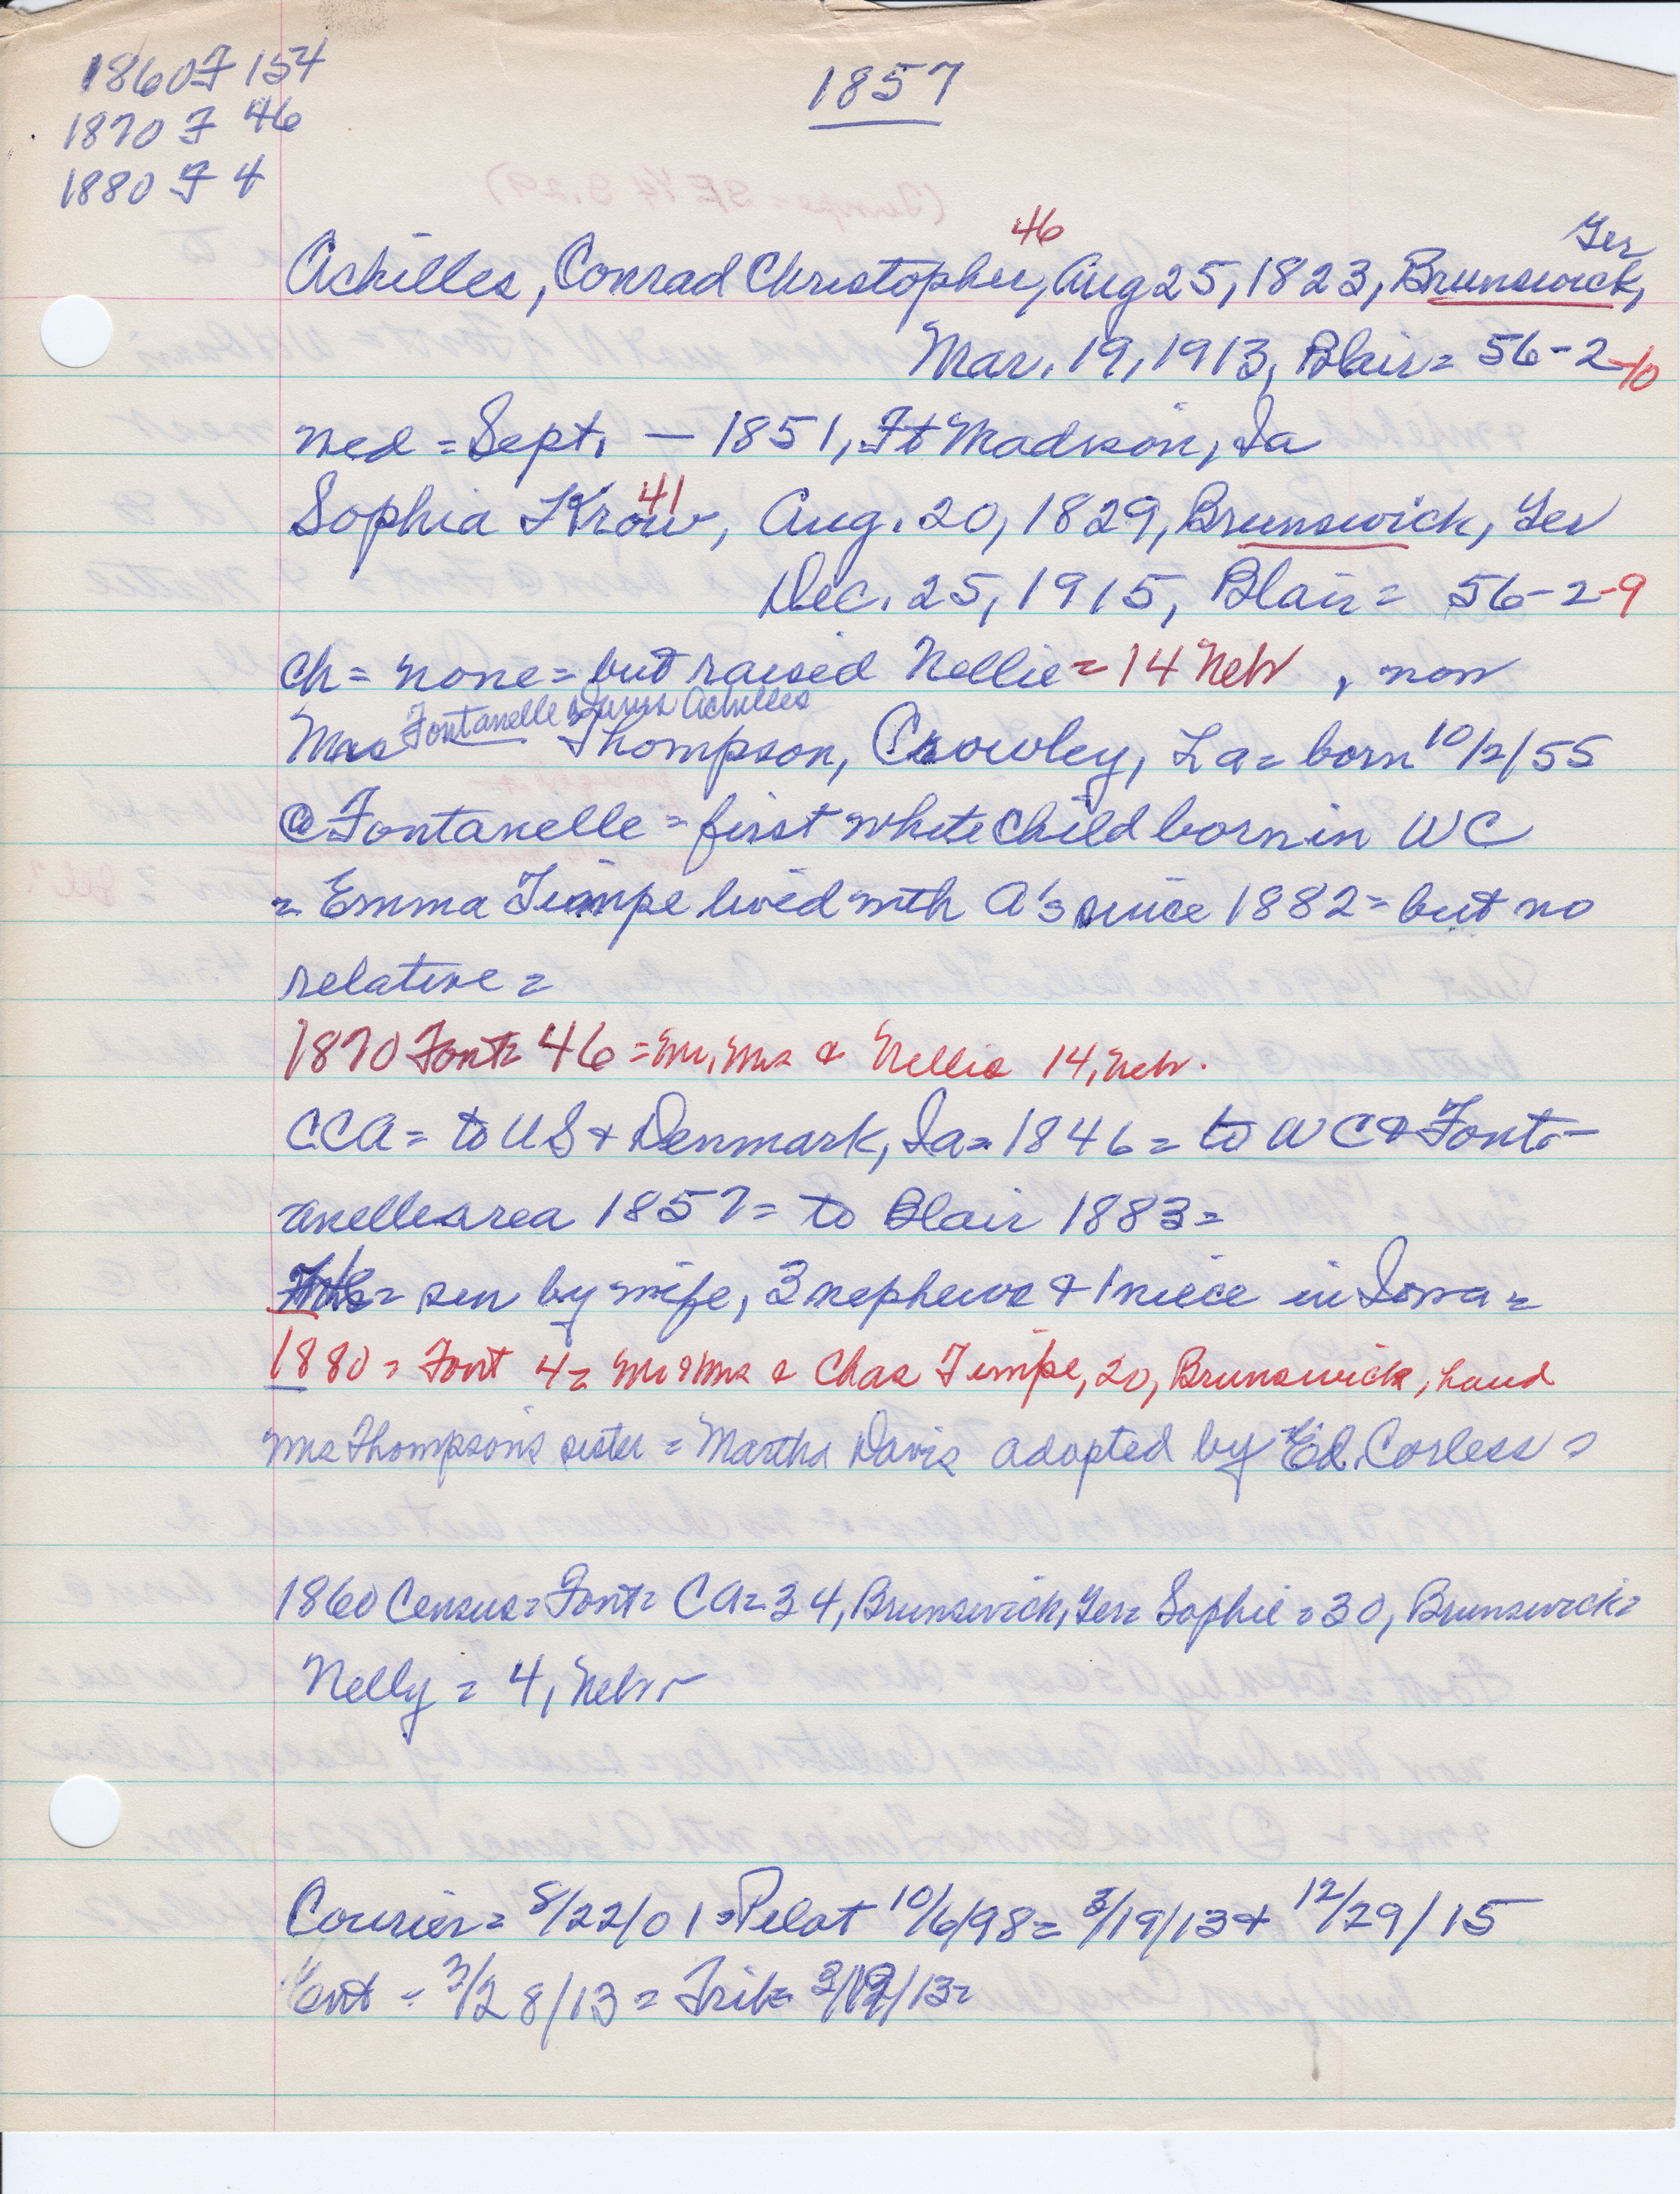 1860 F 154
1870 F 46
1880 F 4
1857
46
Ger
Achilles, Conrad Christopher, Aug 25, 1823, Brunswick,
Mar. 19, 1913, Blair = 56-2-10
wed = Sept. — 1851, Ft Madison, Ia
41
Sophia Krow, Aug. 20, 1829, Brunswick, Ger
Dec. 25, 1915, Blair = 56-2-9
ch = none = but raised Nellie = 14 Neb , now
Fontanelle Achilles
Mrs Thompson, Crowley, La = born 10/2/55
@ Fontanelle = first white child born in WC
= Emma Timpe lived with A's since 1882 = but no
relative =
1870 Font = 46 = Mr, Mrs & Nellie 14, Neb.
CCA = to US & Denmark, Ia = 1846 = to WC & Font-
anelle area 1857 = to Blair 1883 =
= sur by wife, 3 nephews & 1 niece in Iowa =
1880 = Font 4 = Mr & Mrs & Chas Timpe, 20, Brunswick, hand
Mrs Thompson's sister = Martha Davis adopted by Ed. Corless =
1860 Census = Font = CA = 34, Brunswick, Ger = Sophie = 30, Brunswick =
Nelly = 4, Nebr
Courier = 8/22/01 = Pilot 10/6/98 = 3/19/13 + 12/29/15
Ent = 3/28/13 = Trib =